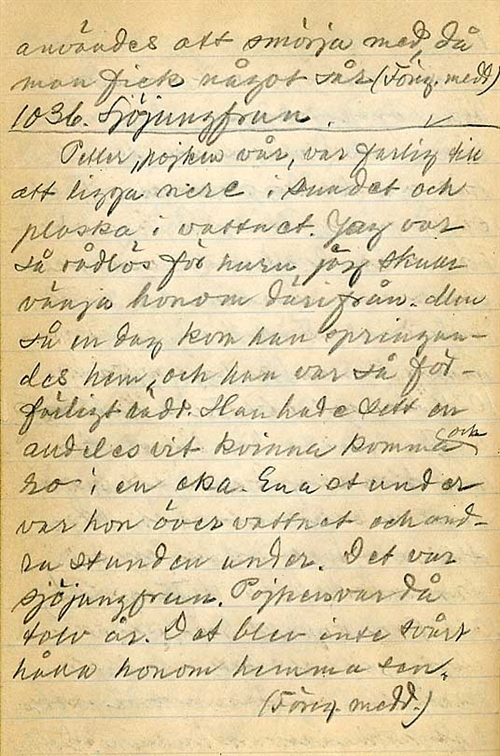 användes att smörja med, då
man fick något sår (Föreg. medd)
1036. Sjöjungfrun.
Petter, pojken vår, var farlig till
att ligga nere i sundet och
plaska i vattnet. Jag var
så rådlös för huru jag skuar
vänja honom därifrån. Men
så en dag kom han springan-
des hem, och han var så för-
färligt rädd. Han hade sett en
andeles vit kvinna komma och
ro i en eka. Ena stunder
var hon över vattnet och and-
ra stunden under. Det var
sjöjungfrun. Pojken var då
tolv år. Det blev inte svårt
hålla honom hemma sen.
(Föreg. medd.)